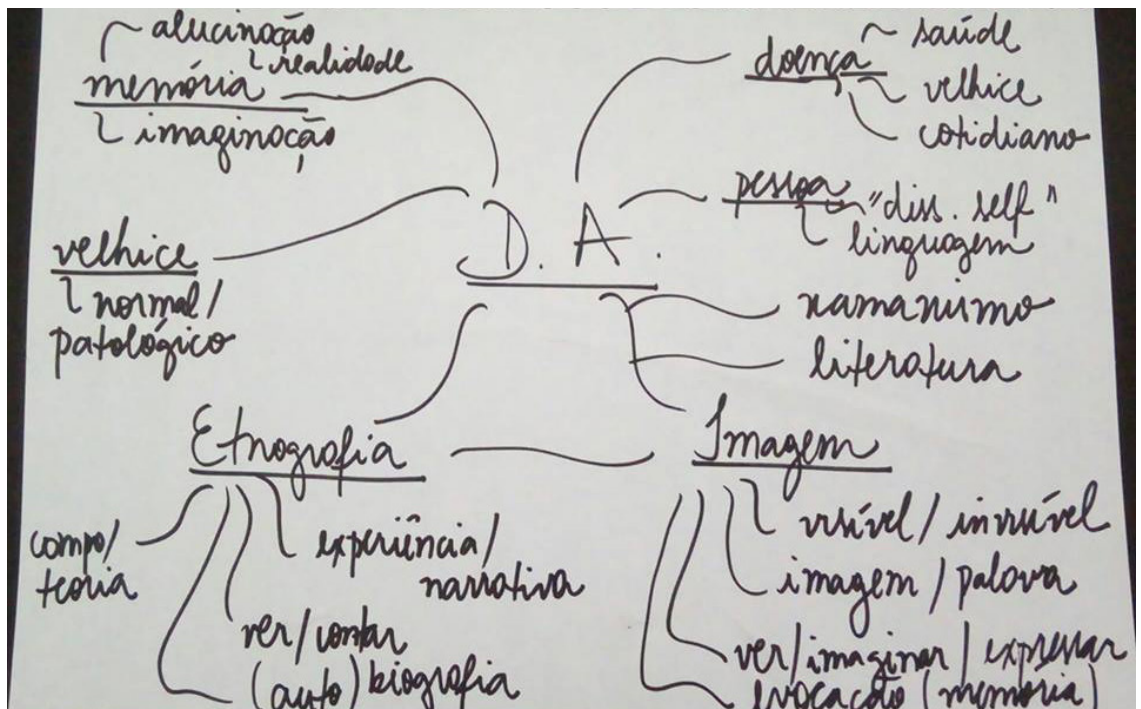 alucinação
realidade
memória
imaginação
velhice
normal/
patológico
D. A.
doença
saúde
velhice
cotidiano
pessoa
"diss. self"
linguagem
xamanismo
literatura
Etnografia
campo/
teoria
experiência/
narrativa
ver/contar
(auto) biografia
Imagem
visível / invisível
imagem / palavra
ver/imaginar/expressar
evocação (memória)